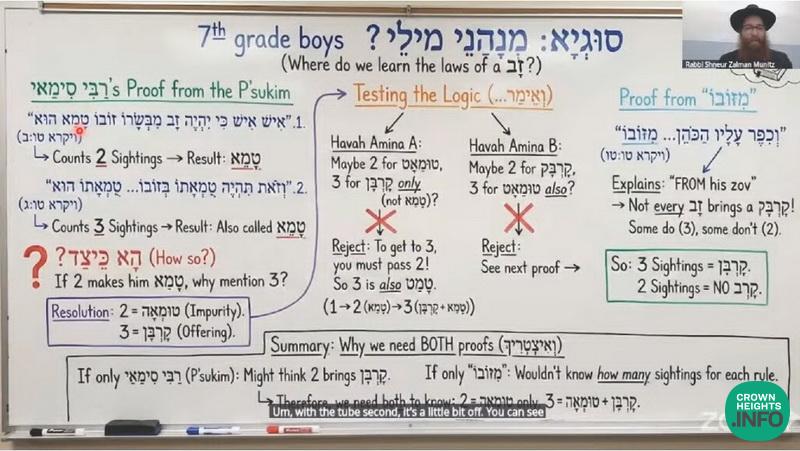 7th grade boys סוגיא: מִנָהֲנֵי מילי?
(Where do we learn the laws of a זָב?)
רַבִּי סִימַאי's Proof from the P'sukim
1. "אִישׁ אִישׁ כִּי יִהְיֶה זָב מִבְּשָׂרוֹ זוֹבוֹ טָמֵא הוּא"
(ויקרא טו:ב)
Counts 2 Sightings → Result: טָמֵא
2. "וְזֹאת תִּהְיֶה טֻמְאָתוֹ בְּזוֹבוֹ... טֻמְאָתוֹ הוּא"
(ויקרא טו:ג)
Counts 3 Sightings → Result: Also called טָמֵא
? הָא כֵּיצַד? (How so?)
If 2 makes him טָמֵא, why mention 3?
Resolution: 2 = טוּמְאָה (Impurity).
3 = קָרְבָּן (Offering).
Testing the Logic (וְאֵימַר...)
Havah Amina A:
Maybe 2 for
3 for קָרְבָּן only
(not טָמֵא)?
Reject: To get to 3,
you must pass 2!
So 3 is also
(1 → 2 (טָמֵא) → 3 (קָרְבָּן + טָמֵא))
Havah Amina B:
Maybe 2 for
3 for also?
Reject:
See next proof →
Proof from "מִזּוֹבוֹ"
"וְכִפֶּר עָלָיו הַכֹּהֵן... מִזּוֹבוֹ"
(ויקרא טו:טו)
Explains: "FROM his zov"
→ Not every זָב brings a
Some do (3), some don't (2).
So: 3 Sightings = קָרְבָּן.
2 Sightings = NO קָרְב.
Summary: Why we need BOTH proofs (וְאִיצְטְרִיךְ)
If only רַבִּי סִימַאי (P'sukim): Might think 2 brings קָרְבָּן.
If only "מִזּוֹבוֹ": Wouldn't know how many sightings for each rule.
Therefore, we need both to know: 2 = טוּמְאָה only, 3 = קָרְבָּן + טוּמְאָה.
Um, with the tube second, it's a little bit off. You can see
Rabbi Shneur Zalman Munitz
CROWN
HEIGHTS
.INFO